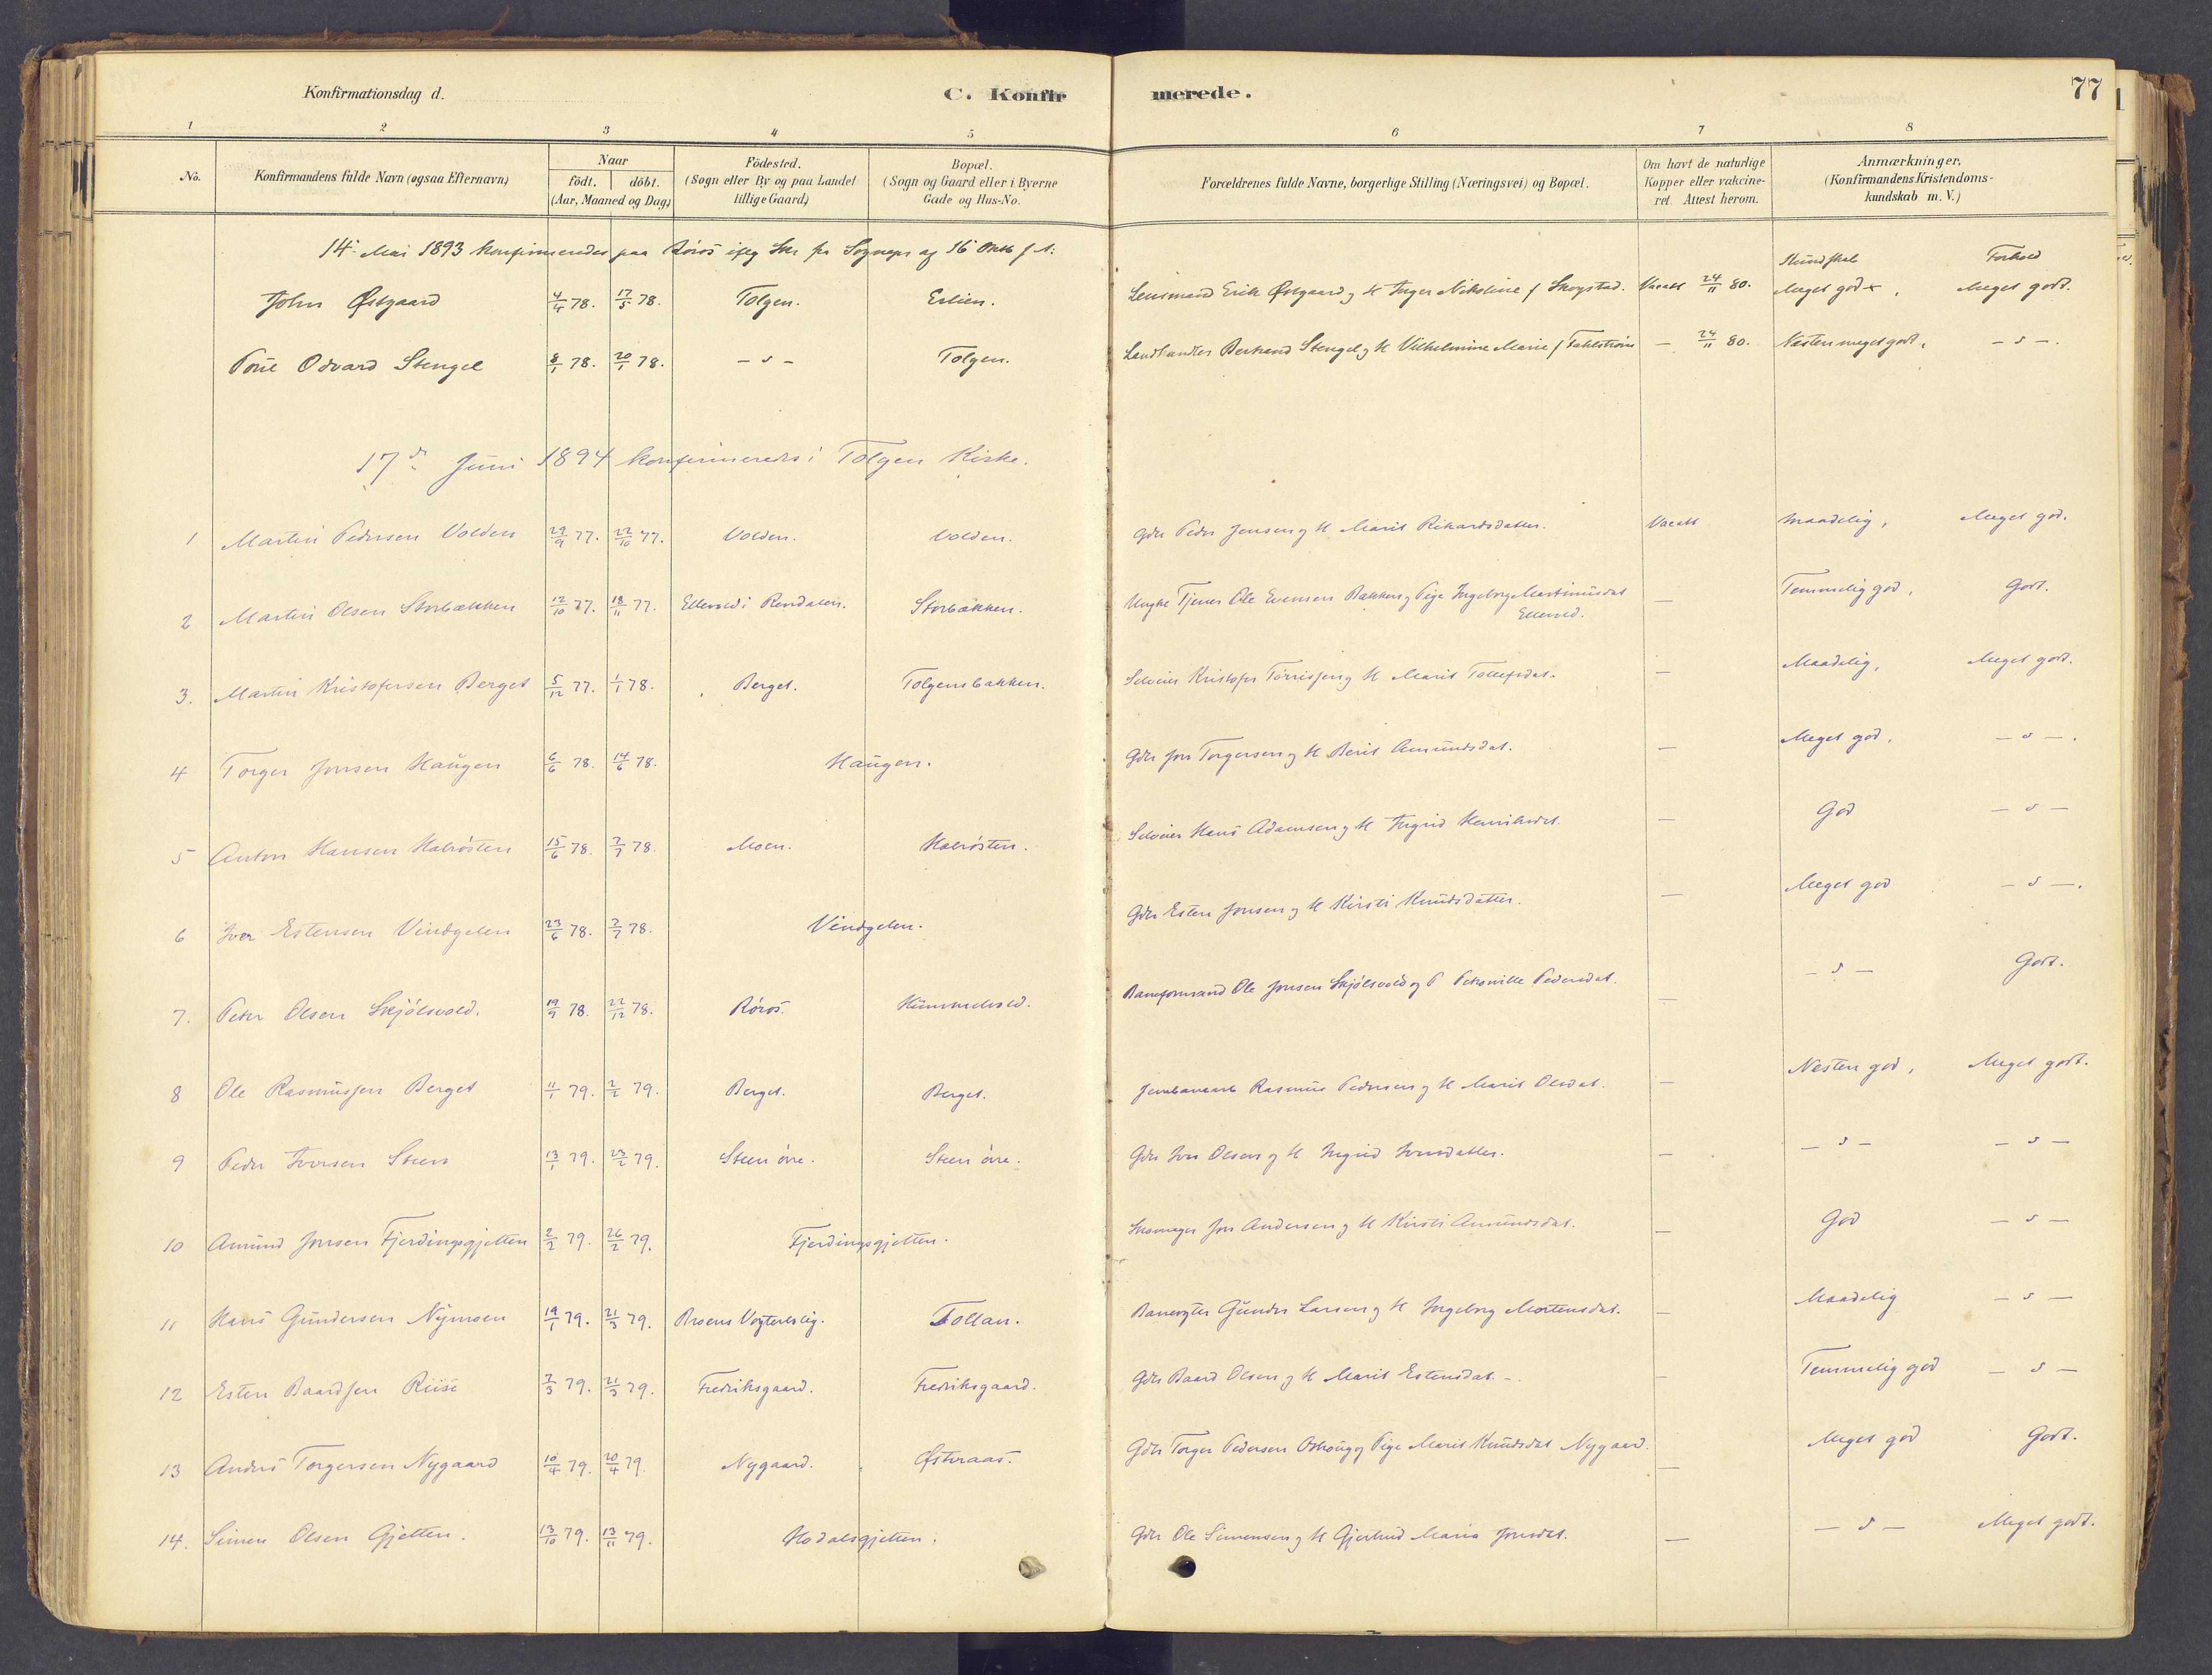 Konfirmationsdag d. C. Konfirmerede. 77
1 2 3 4 5 6 7 8
No. Konfirmandens fulde Navn (ogsaa Efternavn) Naar födt. döbt. (Aar, Maaned og Dag) Födested. (Sogn eller By og paa Landet tillige Gaard) Bopæl. (Sogn og Gaard eller i Byerne Gade og Hus-No. Forældrenes fulde Navne, borgerlige Stilling (Næringsvei) og Bopæl. Om havt de naturlige Kopper eller vakcineret. Attest herom. Anmærkninger. (Konfirmandens Kristendomskundskab m. V.)
14 Mai 1893 konfirmeredes paa Röros iflg Skr fra Sognepr af 16 Oktb f A: Kundskab Forhold
John Østgaard 4/4 78. 17/5 78. Tolgen. Erlien. Lensmand Erik Østgaard og H Inger Nikoline f Skogstad. Vacatt 24/11 80. Meget god +, Meget godt.
Odvard Stengel 8/1 78. 20/1 78. – s – Tolgen. Landhandler Bertrand Stengel og H Vilhelmine Marie f Fahlström — 24/11 80. Næsten meget godt, – s –.
17de Juni 1894 konfirmeredes i Tolgen Kirke.
1 Martin Pedersen Volden 29/9 77. 22/10 77. Volden. Volden. Gdr Peder Jensen og H Marit Rikardsdatter. Vacatt Maadelig, Meget god.
2 Martin Olsen Storbækken 12/10 77. 18/11 77. Ellevold i Rendalen. Storbækken. Ungkr Tjener Ole Evensen Bakken og Pige Ingeborg Martinusdat Ellevold. — Temmelig god, Godt.
3. Martin Kristofersen Berget 5/12 77. 1/1 78. Berget. Tolgensbakken. Selveier Kristofer Törrisen og H Marit Tollefsdat. — Maadelig, Meget godt.
4 Torger Jonsen Haugen 6/6 78. 14/6 78. Haugen. Gdr Jon Torgersen og H Berit Amundsdat. — Meget god, – s –.
5 Anton Hansen Halrösten 15/6 78. 7/7 78. Moen. Halrösten. Selveier Hans Adamsen og H Ingrid Henriksdat. — God – s –
6 Iver Estensen Vindgelen 23/6 78. 7/7 78. Vindgelen. Gdr Esten Jonsen og H Kirsti Knudsdatter. — Meget god – s –.
7. Peter Olsen Skjölsvold. 19/9 78. 22/12 78. Röros. Hummelvold. Baneformand Ole Jonsen Skjölsvold og P Petronille Pedersdat. — – s – Godt.
8 Ole Rasmussen Berget 11/1 79. 2/2 79. Berget. Berget. Jernbanearb Rasmus Pedersen og H Marit Olsdat. — Næsten god, Meget godt.
9 Peder Iversen Steen 13/1 79. 23/2 79. Steen övre. Steen övre. Gdr Iver Olsen og H Ingrid Iversdatter. — – s – – s –
10 Amund Jonsen Fjerdingsgjetten 2/2 79. 26/2 79. Fjerdingsgjetten. Skomager Jon Andersen og H Kirsti Amundsdat. — God – s –
11 Hans Gundersen Nymoen 19/1 79. 21/3 79. Broens Vogterbolig. Tollan. Banevogter Gunder Larsen og H Ingeborg Mortensdat. — Maadelig – s –
12 Esten Baardsen Riise 7/3 79. 21/3 79. Fredriksgaard. Fredriksgaard. Gdr Baard Olsen og H Marit Estensdat. — Temmelig god – s –
13 Anders Torgersen Nygaard 10/4 79. 20/4 79. Nygaard. Østeraas. Gdr Torger Pedersen Oshoug og Pige Marit Knudsdat Nygaard. — Meget god Godt.
14. Simen Olsen Gjetten. 13/10 79. 13/11 79. Hodalsgjetten. Gdr Ole Simensen og H Gjertrud Maria Jonsdat. — – s – Meget godt.